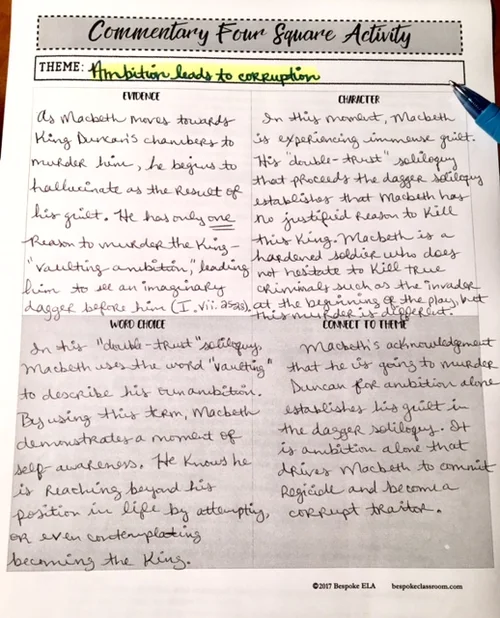 Commentary Four Square Activity
THEME: Ambition leads to corruption
EVIDENCE
As Macbeth moves towards
King Duncan's chambers to
murder him, he begins to
hallucinate as the result of
his guilt. He has only one
reason to murder the King-
"vaulting ambition," leading
him to see an imaginary
dagger before him (I.vii.25-28).
CHARACTER
In this moment, Macbeth
is experiencing immense guilt.
His "double-trust" soliloquy
that proceeds the dagger soliloquy
establishes that Macbeth has
no justified reason to kill
this King. Macbeth is a
hardened soldier who does
not hesitate to kill true
criminals such as the invader
at the beginning of the play, but
this murder is different.
WORD CHOICE
In this "double-trust" soliloquy,
Macbeth uses the word "vaulting"
to describe his own ambition.
By using this term, Macbeth
demonstrates a moment of
self-awareness. He knows he
is reaching beyond his
position in life by attempting,
or even contemplating
becoming the King.
CONNECT TO THEME
Macbeth's acknowledgement
that he is going to murder
Duncan for ambition alone
establishes his guilt in
the dagger soliloquy. It
is ambition alone that
drives Macbeth to commit
regicide and become a
corrupt traitor.
©2017 Bespoke ELA bespokeclassroom.com